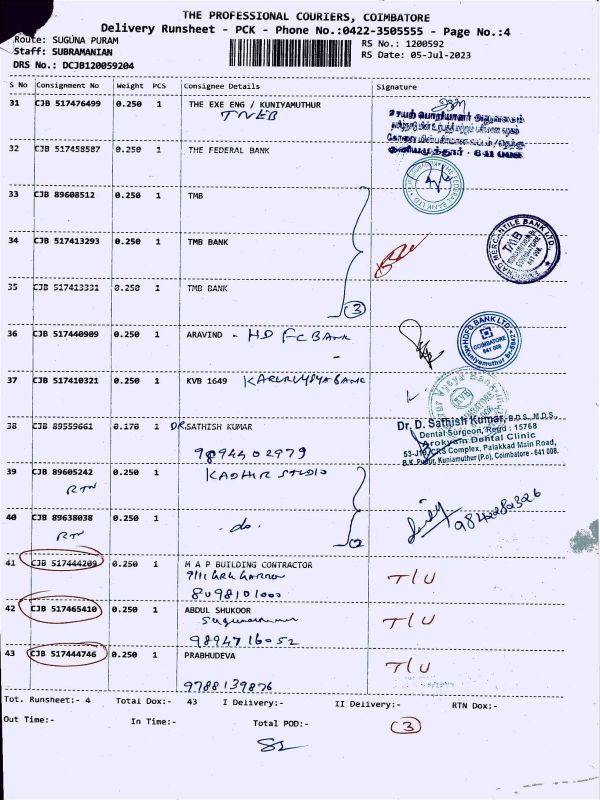 THE PROFESSIONAL COURIERS, COIMBATORE
Delivery Runsheet - PCK - Phone No.:0422-3505555 - Page No.:4
Route: SUGUNA PURAM
RS No.: 1200592
Staff: SUBRAMANIAN
RS Date: 05-Jul-2023
DRS No.: DCJB120059204
S No Consignment No Weight PCS Consignee Details Signature
31 CJB 517476499 0.250 1 THE EXE ENG / KUNIYAMUTHUR
TNEB
செயற் பொறியாளர் அலுவலகம்
குனியமுத்தூர் - 641 008
32 CJB 517458587 0.250 1 THE FEDERAL BANK
33 CJB 89608512 0.250 1 TMB
34 CJB 517413293 0.250 1 TMB BANK
TMB
35 CJB 517413331 0.250 1 TMB BANK
3
36 CJB 517440909 0.250 1 ARAVIND - HDFC BANK
HDFC BANK LTD.
COIMBATORE
641 008
37 CJB 517410321 0.250 1 KVB 1649 KARURVYSYABANK
38 CJB 89559661 0.170 1 DR.SATHISH KUMAR
9894402979
Dr. D. Sathish Kumar, B.D.S., M.D.S.,
Dental Surgeon, Regd : 15768
Arokyam Dental Clinic
CRS Complex, Palakkad Main Road,
B.K. Pudur, Kuniamuthur (P.o), Coimbatore - 641 008.
39 CJB 89605242 0.250 1 KADHIR STUDIO
RTN
9842282326
40 CJB 89638038 0.250 1 - do -
RTN
2
41 CJB 517444209 0.250 1 M A P BUILDING CONTRACTOR
8098101000
T/U
42 CJB 517465410 0.250 1 ABDUL SHUKOOR
9894716052
T/U
43 CJB 517444746 0.250 1 PRABHUDEVA
9788139876
T/U
Tot. Runsheet:- 4 Total Dox:- 43 I Delivery:- II Delivery:- RTN Dox:-
Out Time:- In Time:- Total POD:- 3